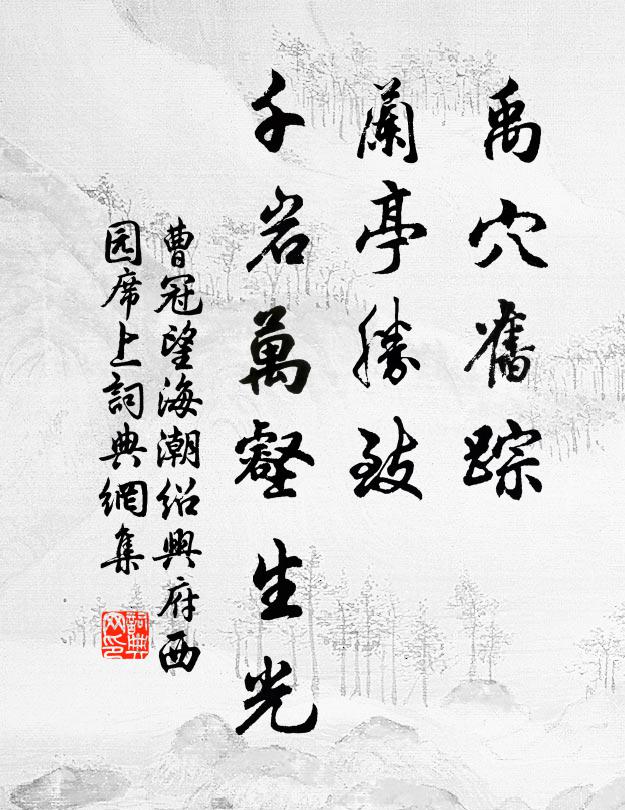 禹穴舊踪
蘭亭勝致
千岩萬壑生光
曹冠望海潮紹興府西
园席上詞典網集
詞典网印